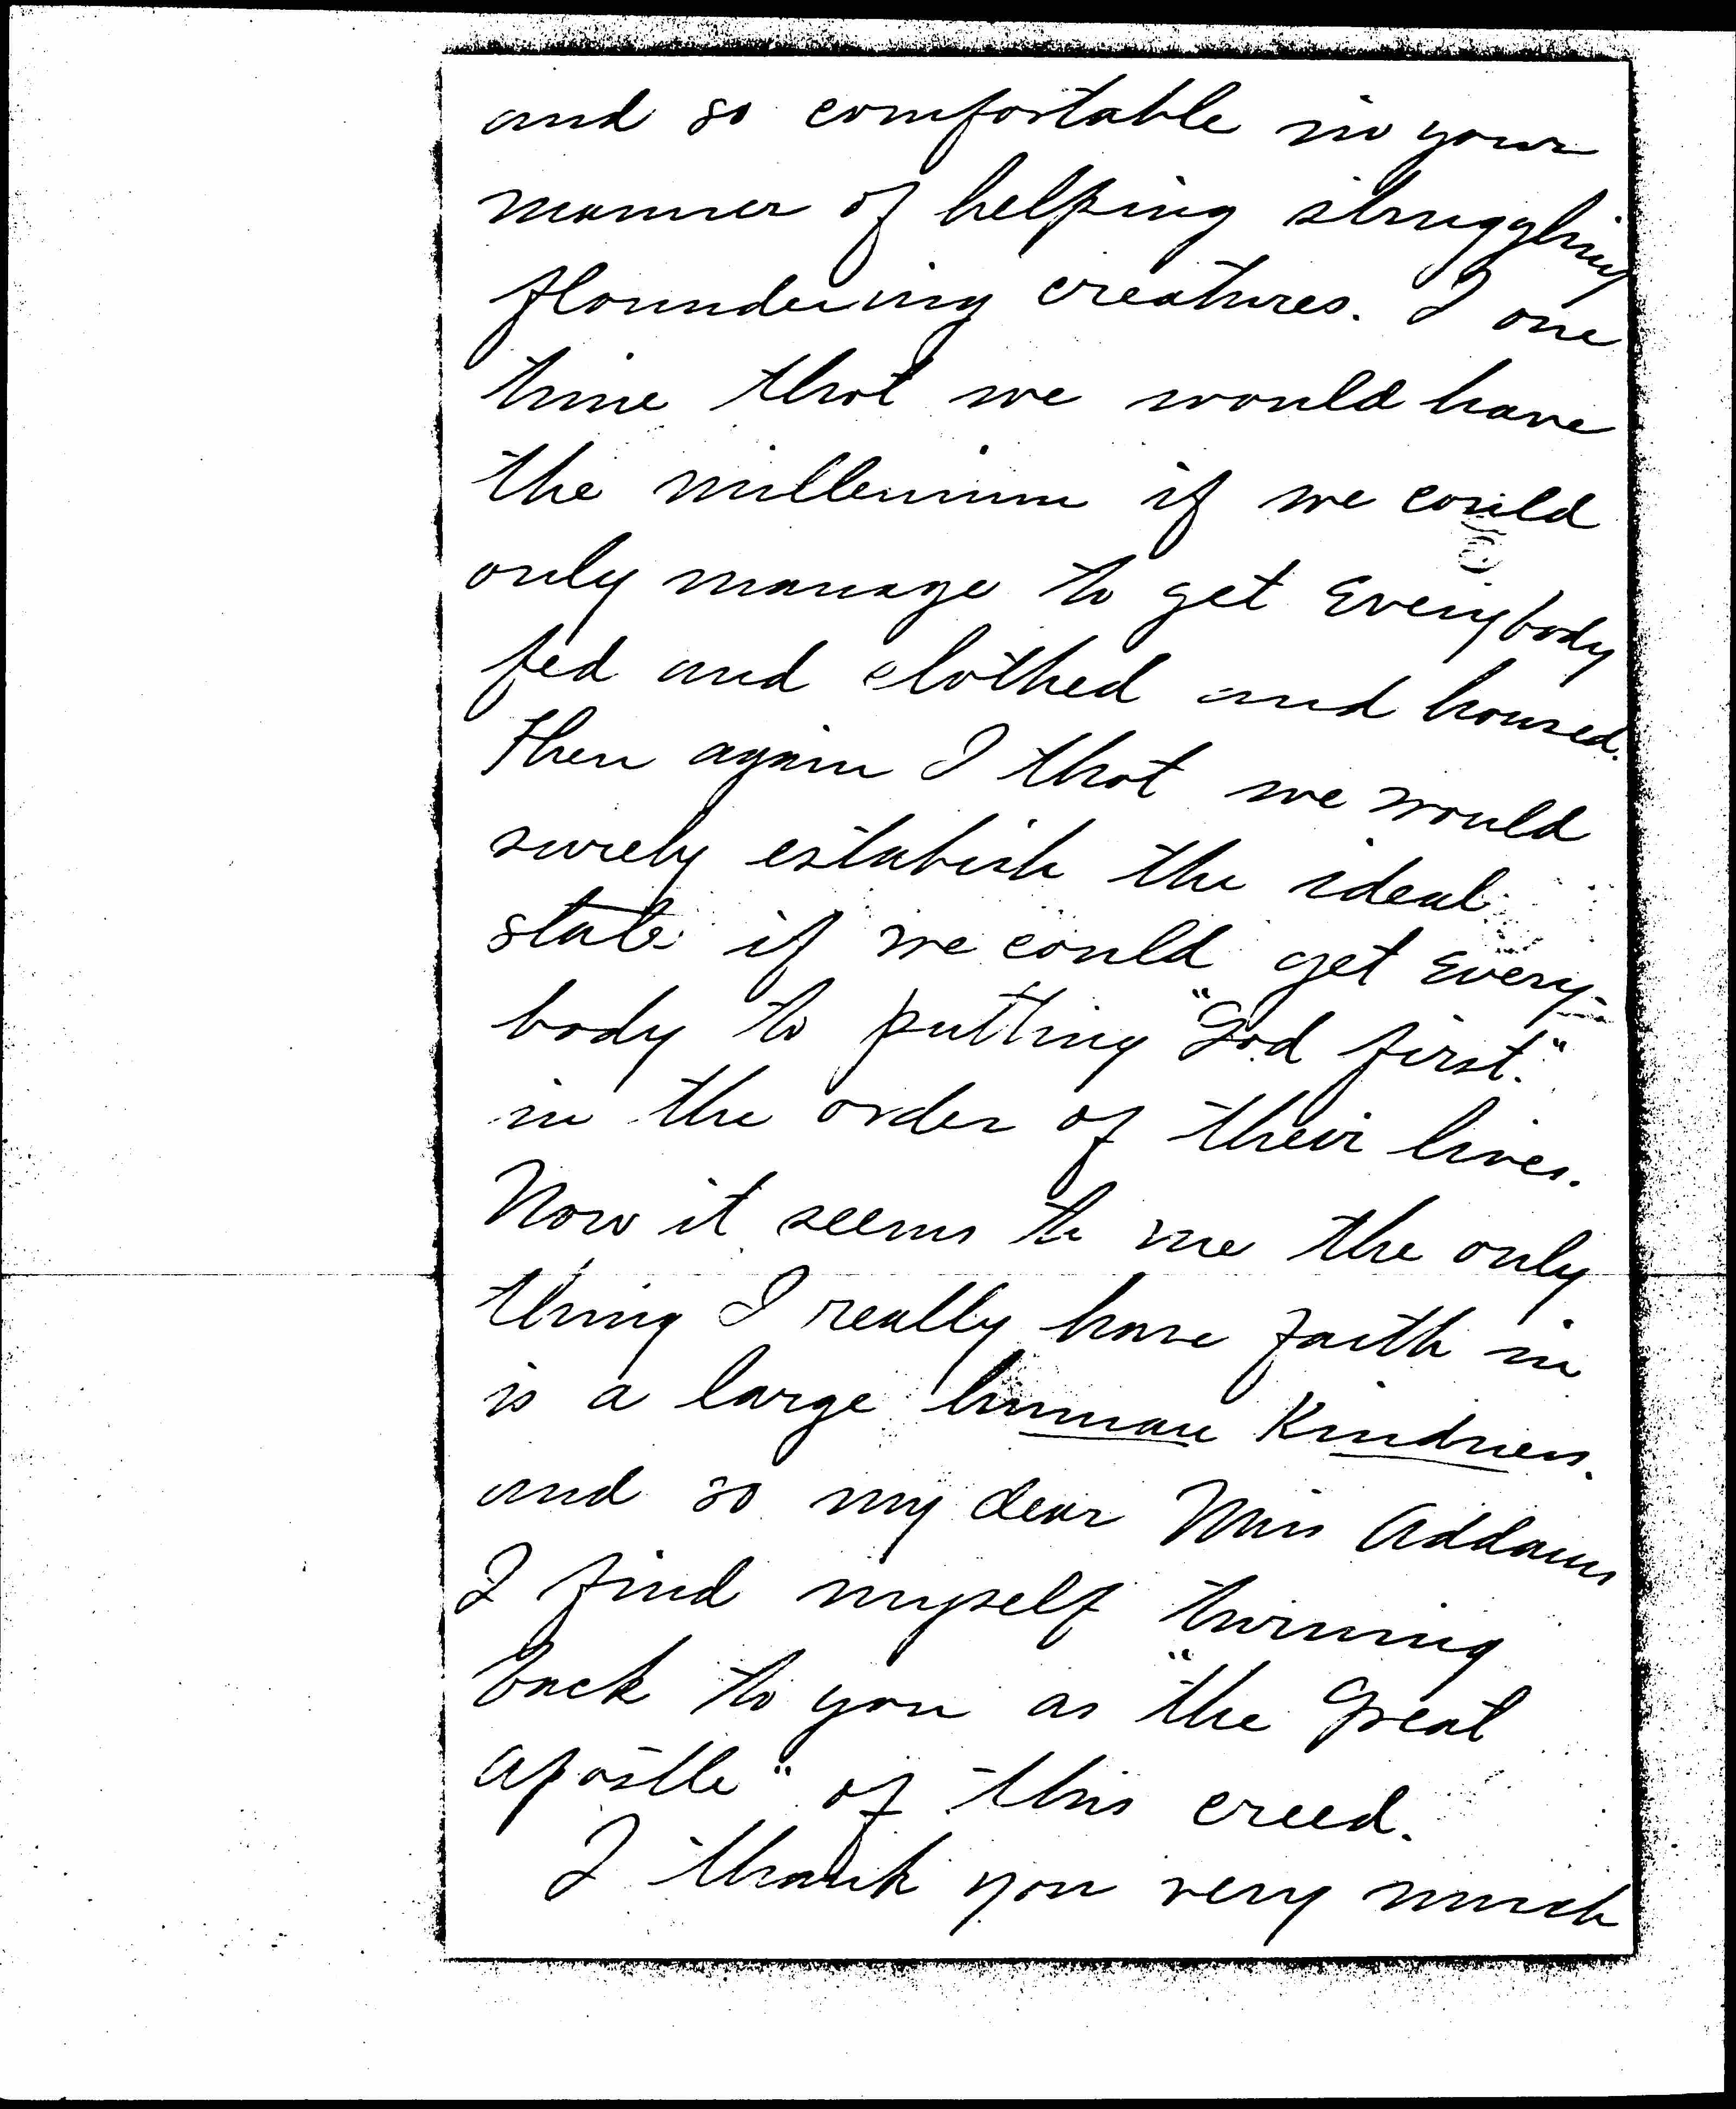 and so comfortable in your
manner of helping struggling
floundering creatures. I one
time thot we would have
the millennium if we could
only manage to get everybody
fed and clothed and housed.
Then again I thot we would
surely establish the ideal
state if we could get every-
body to putting "God first."
in the order of their lives.
Now it seems to me the only
thing I really have faith in
is a large human kindness.
and so my dear Miss Addams
I find myself turning
back to you as "the Great
apostle" of this creed.
I thank you very much